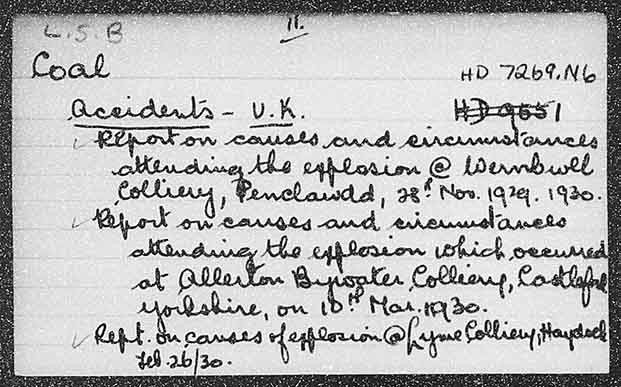 L.S.B
11.
Coal
HD 7269.N6
Accidents - U.K.
HD 9551
Report on causes and circumstances
attending the explosion @ Wernbwll
Colliery, Penclawdd, 28th Nov. 1929. 1930.
Report on causes and circumstances
attending the explosion which occurred
at Allerton Bywater Colliery, Castleford
Yorkshire, on 10th Mar. 1930.
Rept. on causes of explosion @ Lyme Colliery, Haydock
Feb. 26/30.